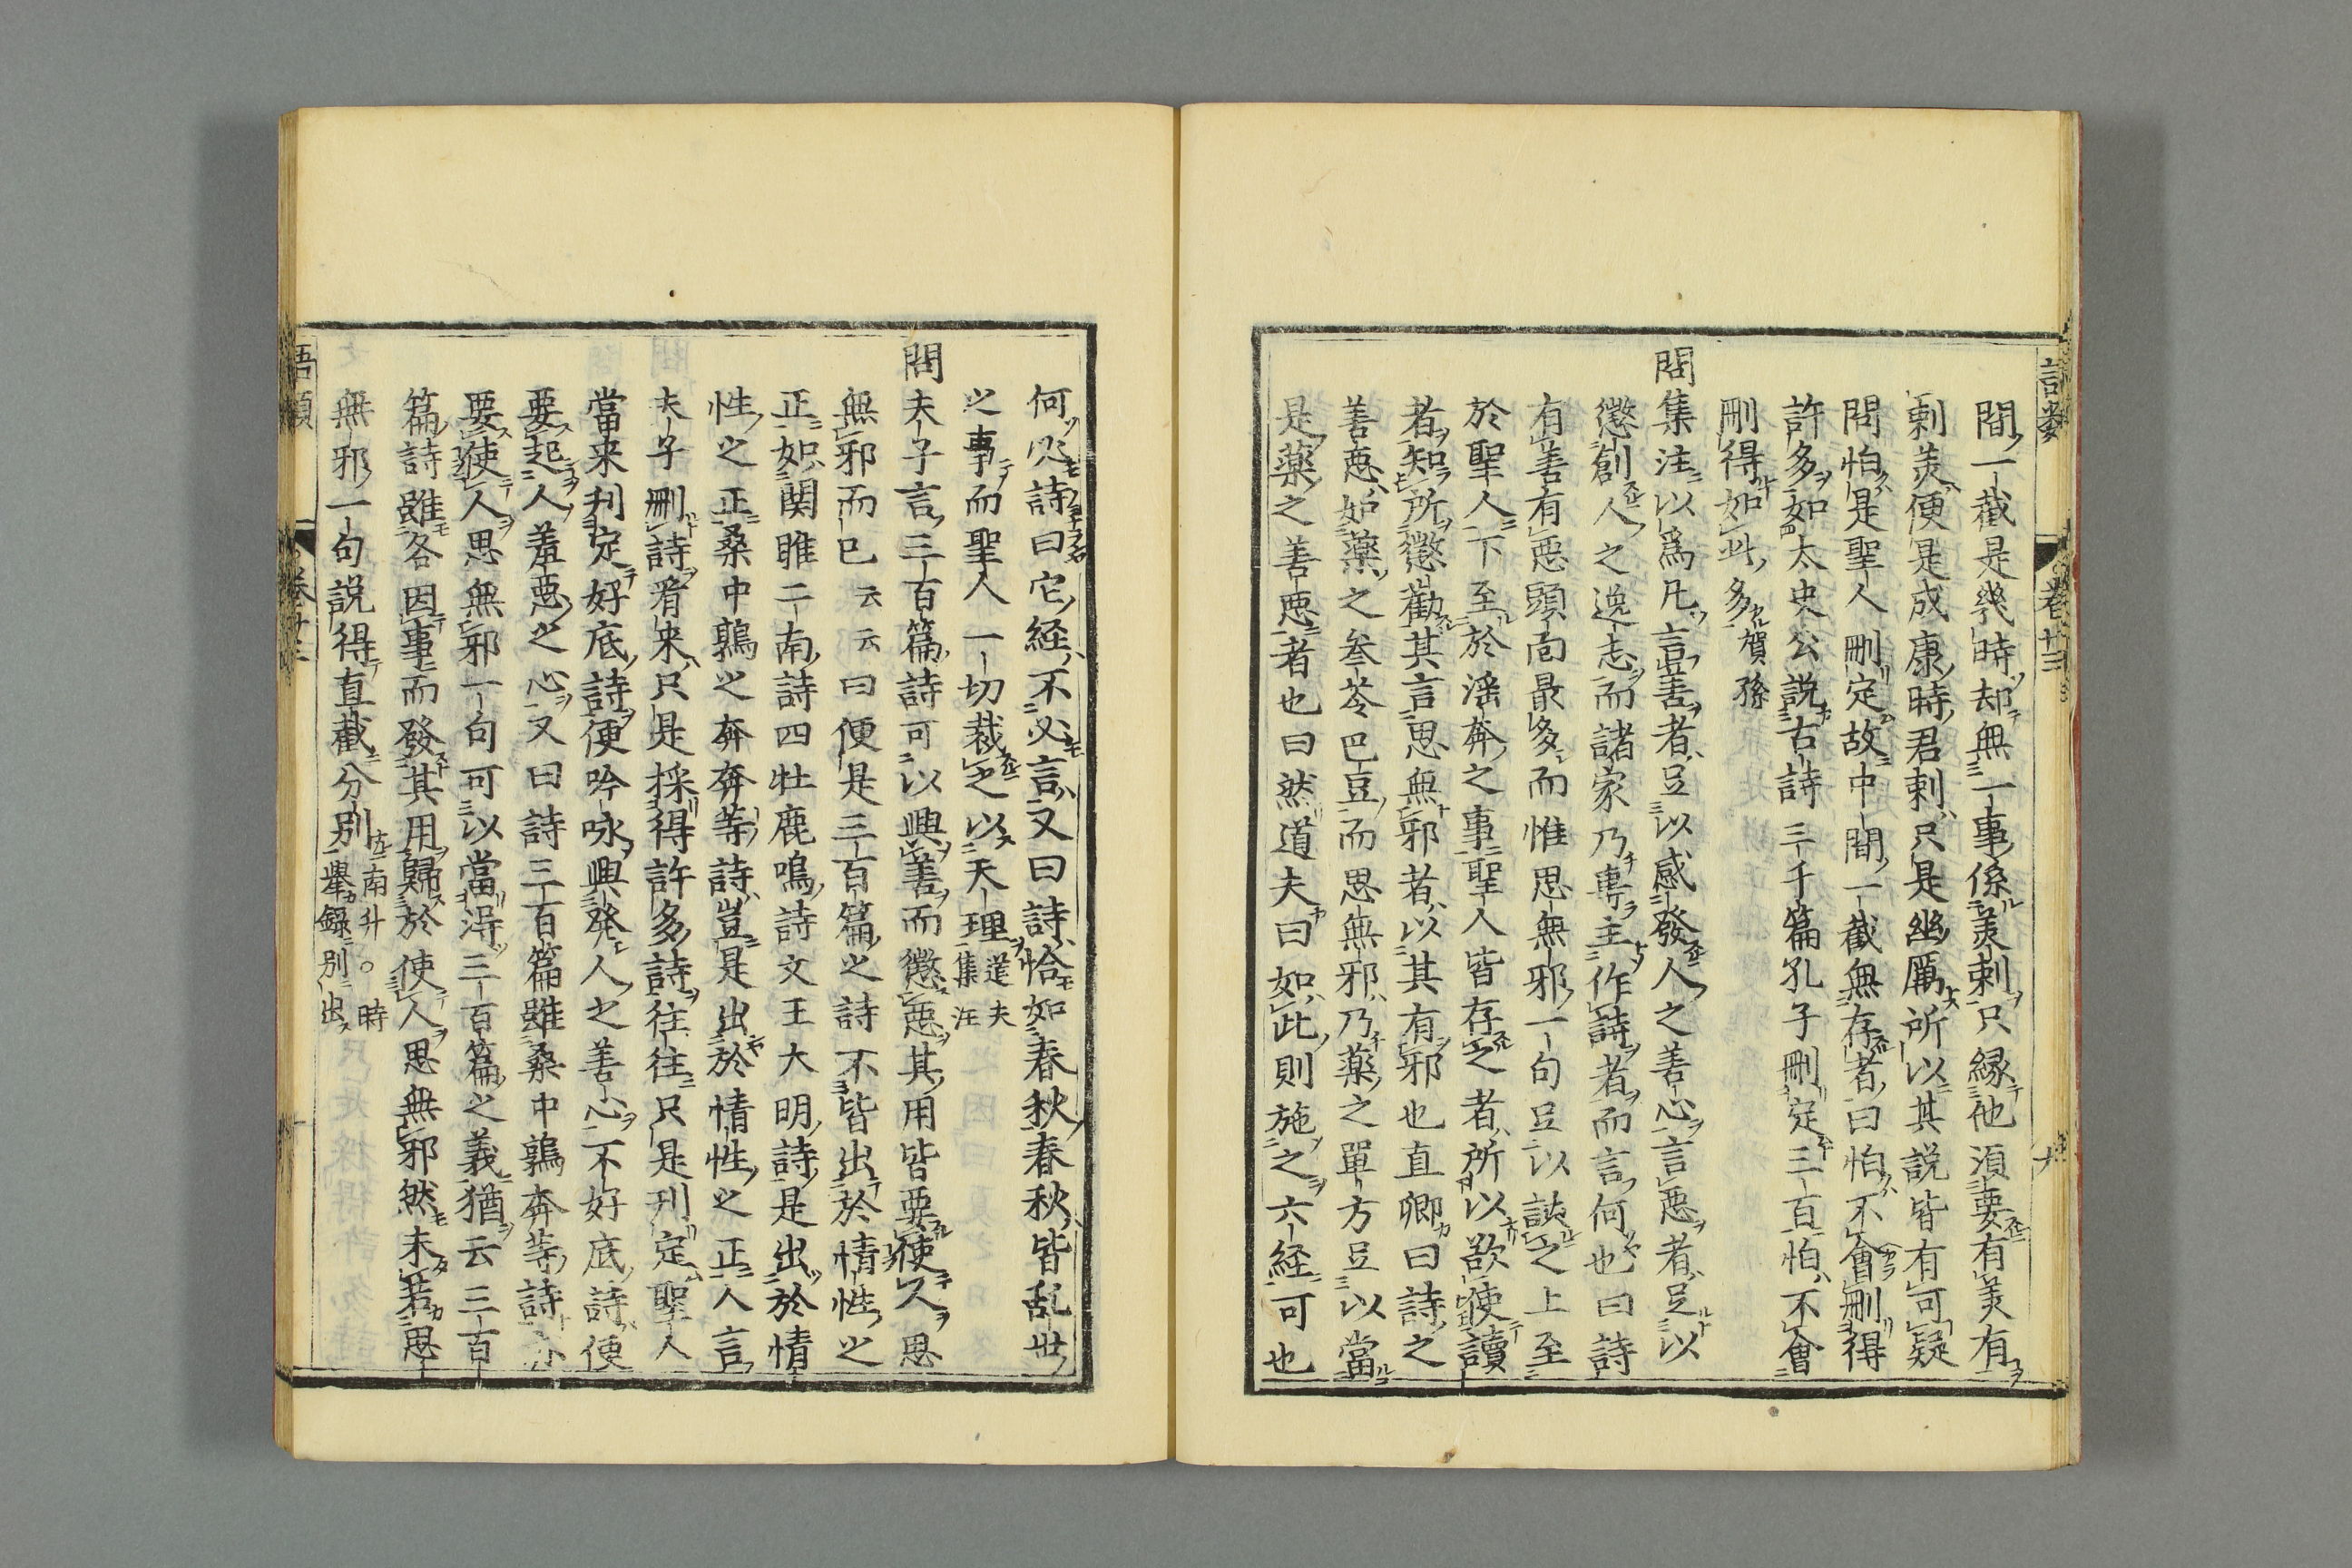 間一截是幾時却無一事係美刺只縁他須要有美有
刺美便是成康時君刺只是幽厲所以其説皆有可疑
問怕是聖人刪定故中間一截無存者曰怕不會刪得
許多如太史公説古詩三千篇孔子刪定三百怕不會
刪得如此多賀孫
問集注以為凡言善者足以感發人之善心言惡者足以
懲創人之逸志而諸家乃專主作詩者而言何也曰詩
有善有惡頭面最多而惟思無邪一句足以該之上至
於聖人下至於淫奔之事聖人皆存之者所以欲使讀
者知所懲勸其言思無邪者以其有邪也直卿曰詩之
善惡如藥之參苓巴豆而思無邪乃藥之單方足以當
是藥之善惡者也曰然道夫曰如此則施之六経可也
語類 卷廿三
何必詩曰它経不必言又曰詩恰如春秋春秋皆乱世
之事而聖人一切裁之以天理道夫集注
問夫子言三百篇詩可以興善而懲惡其用皆要使人思
無邪而已云云曰便是三百篇之詩不皆出於情性之
正如関雎二南詩四牡鹿鳴詩文王大明詩是出於情
性之正桑中鶉之奔奔等詩豈是出於情性之正人言
夫子刪詩看来只是採得許多詩往往只是刊定聖人
當来刋定好底詩便吟咏興發人之善心不好底詩便
要起人羞惡之心又曰詩三百篇雖桑中鶉奔等詩亦
要使人思無邪一句可以當得三百篇之義猶云三百
篇詩雖各因事而發其用歸於使人思無邪然未若思
無邪一句説得直截分別南升。時舉録別出
語類 卷廿三